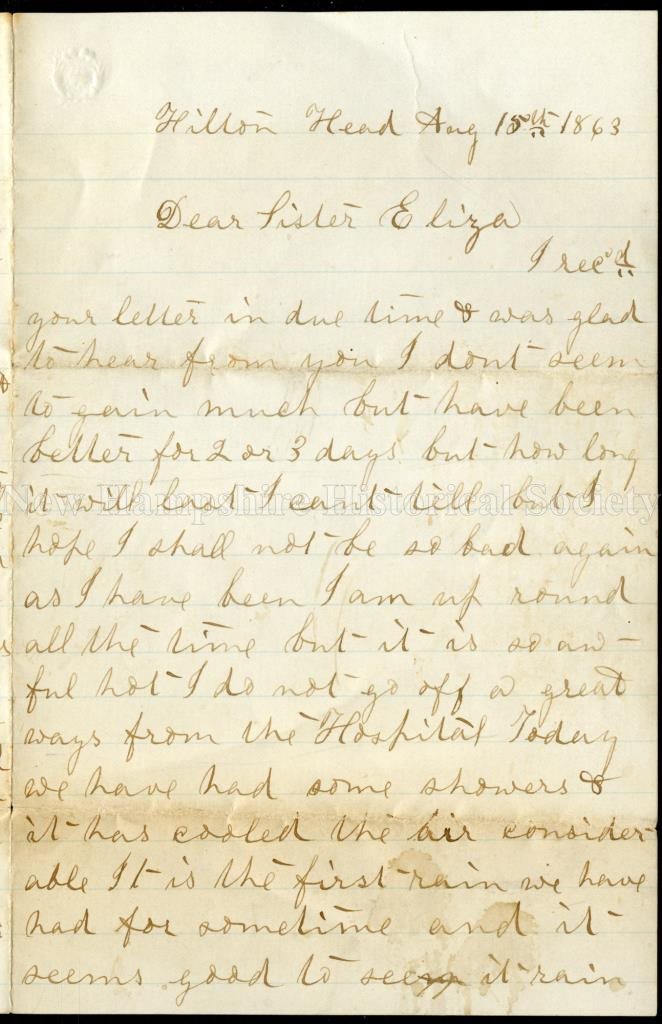 Hilton Head Aug 15th 1863
Dear Sister Eliza
I rec'd
your letter in due time & was glad
to hear from you I dont seem
to gain much but have been
better for 2 or 3 days but how long
it will last I cant tell but I
New Hampshire Historical Society
hope I shall not be so bad again
as I have been I am up round
all the time but it is so aw-
ful hot I do not go off a great
ways from the Hospital Today
we have had some showers &
it has cooled the air consider
able It is the first rain we have
had for sometime and it
seems good to see it rain